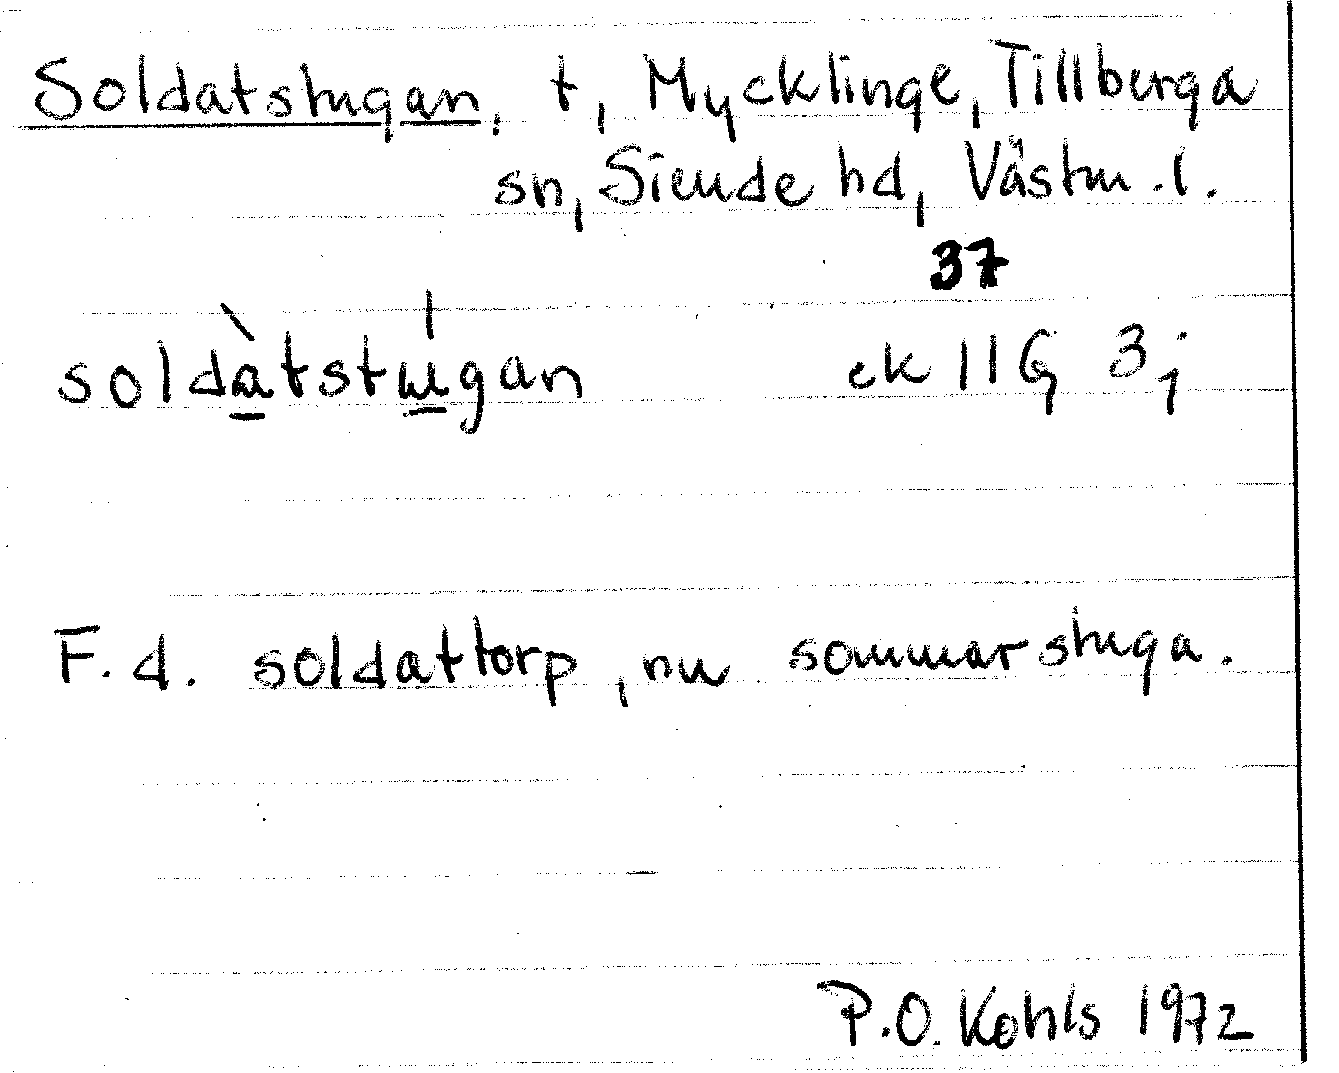 Soldatstugan, t, Mycklinge, Tillberga
sn, Siende hd, Västm. l.
37
soldàtstúgan ek 11G 3j
F.d. soldattorp, nu sommarstuga.
P.O. Kohls 1972